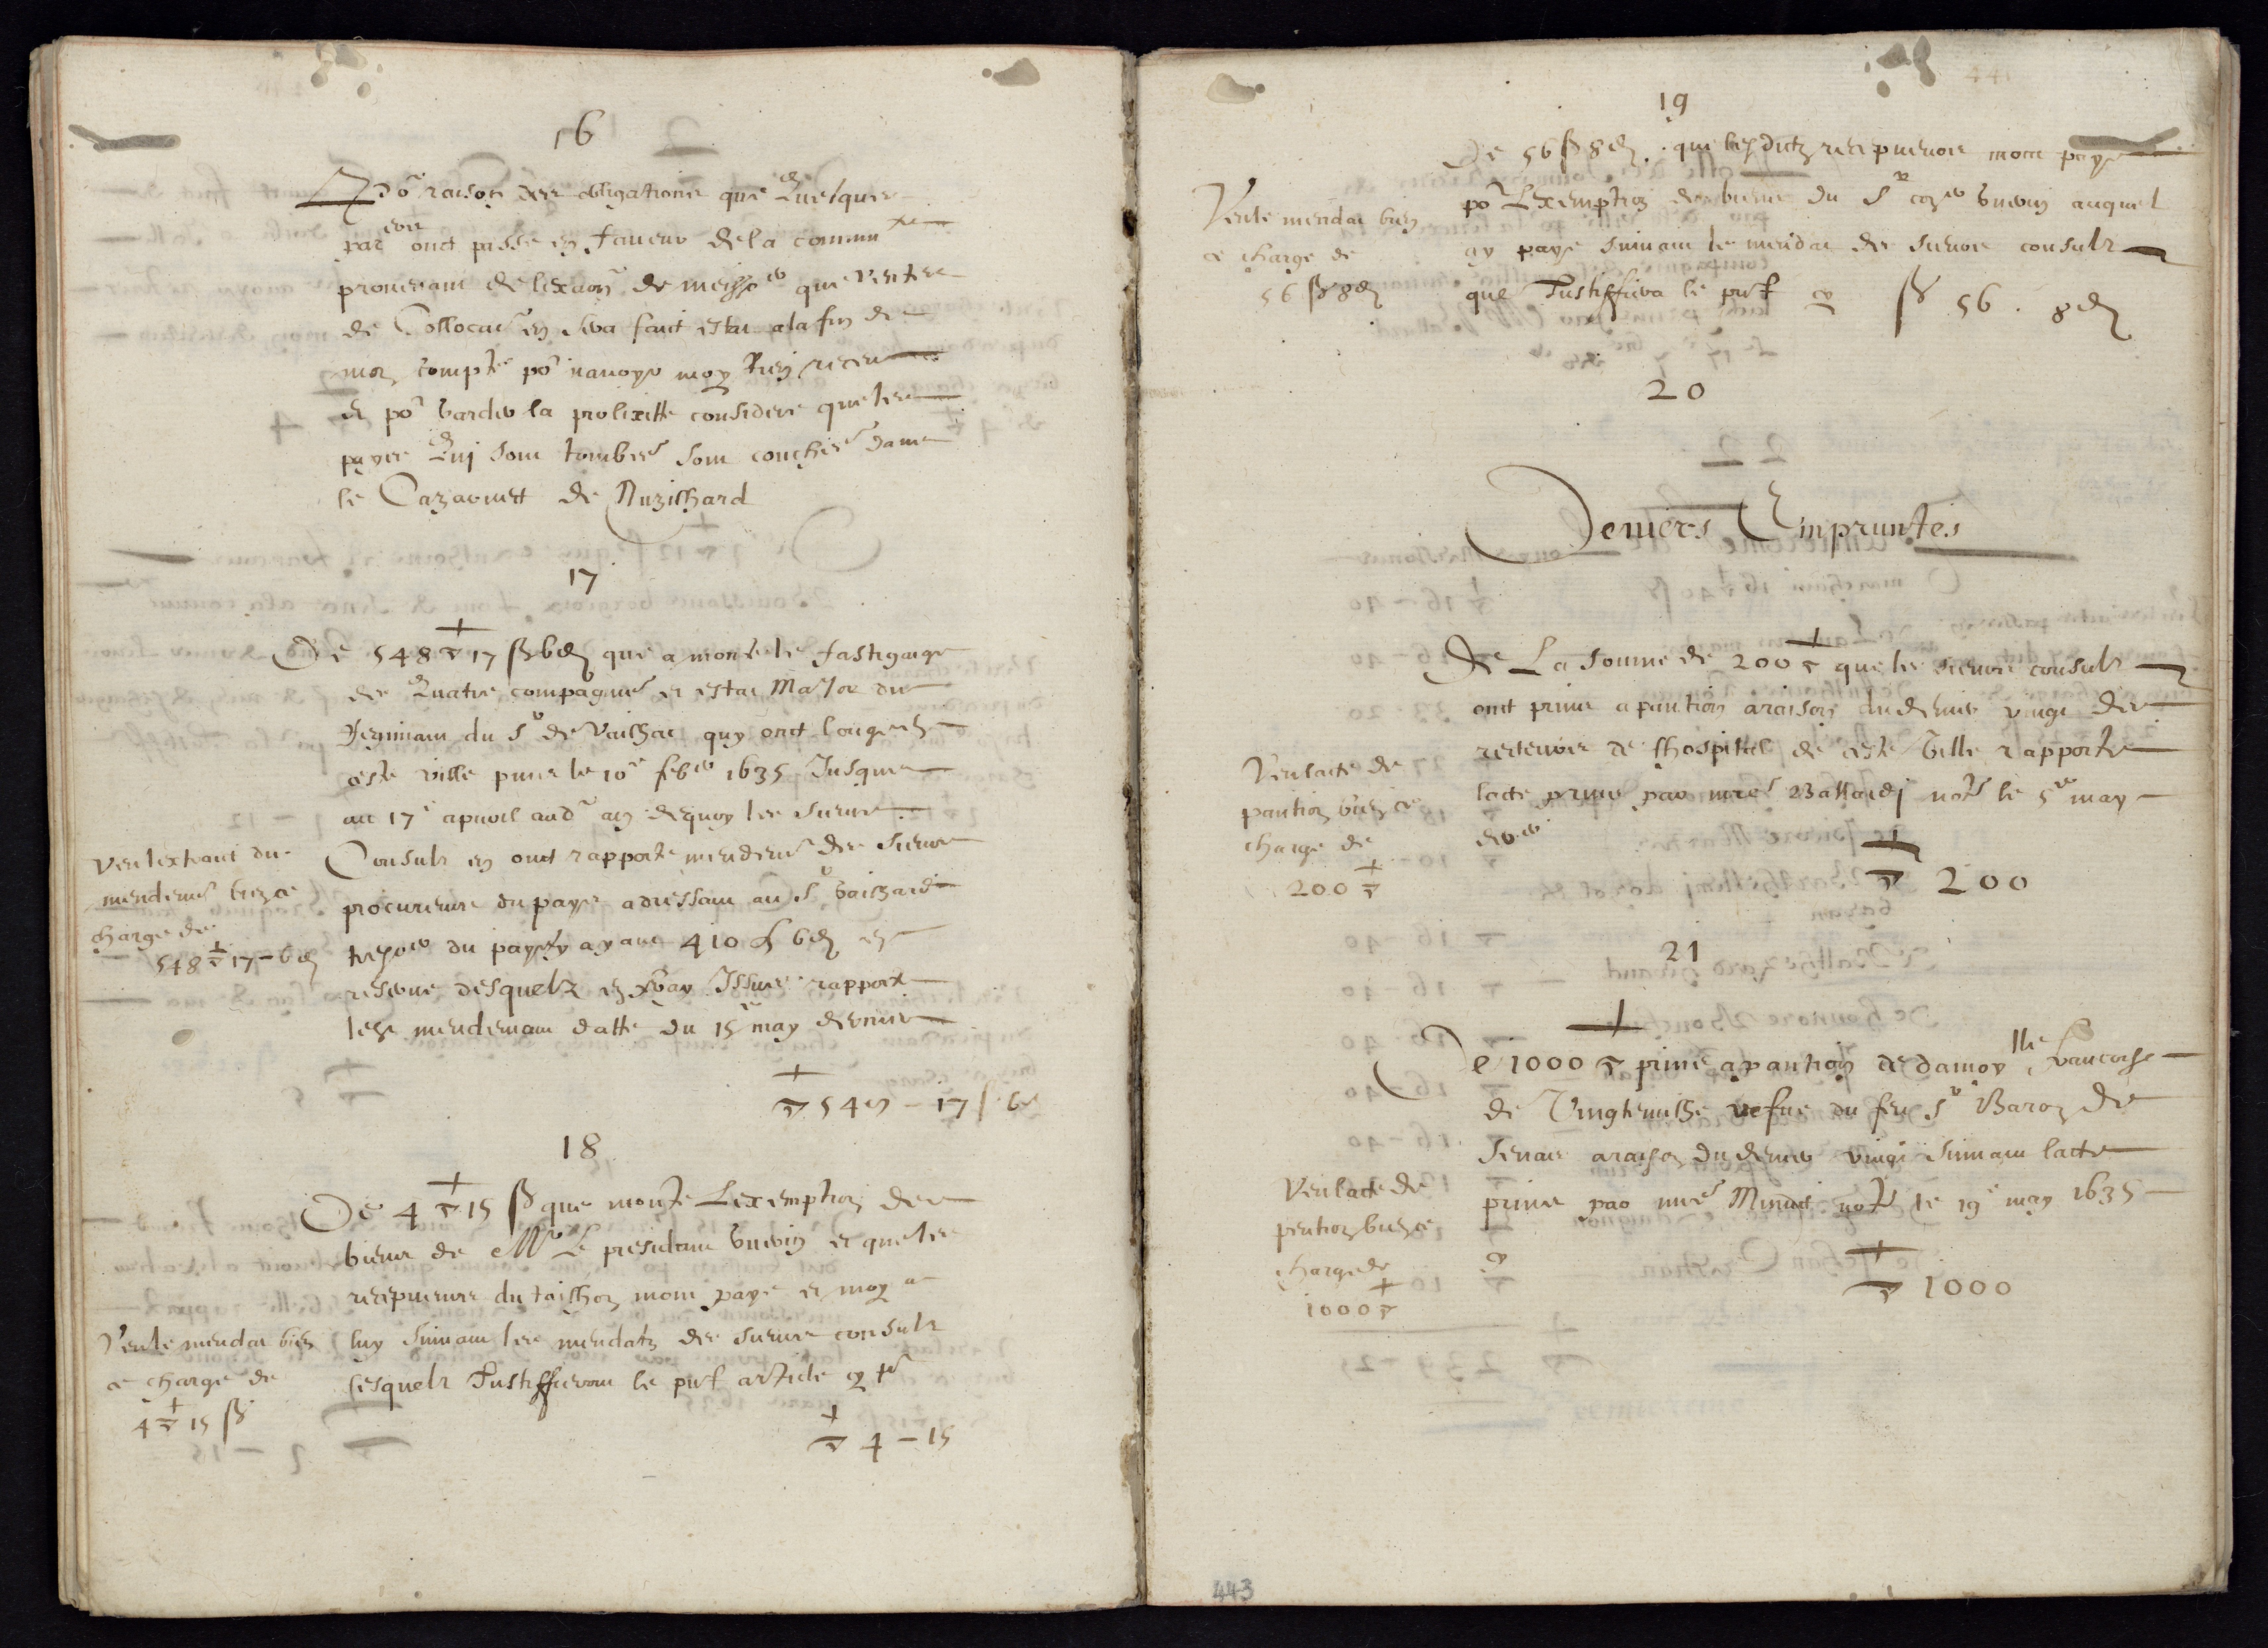 16
A po^r raison des obligations que quelques
par^ers ont passé en faveur de la commu^te
provenant de
de Collocat^n en sera faict estat a la fin de
mon compte po^r navoyr moy rien receu
et po^r tarder la prolixitte considere que les
payes qui sont tombes sont couchés dans
le Cazavnet de Nuzilhard
17
De 548 ▽ 17 ß 6 d que a monté le fastigaige
de quatre compagnies et estat Maior du
Regimant du S^r de Vailhac quy ont logé en
ceste ville puis le 10^e feb^er 1635 Jusques
au 17^e apvril aud^t an dequoy les sieurs
Consulz en ont rapporté mendem^t des sieurs
procureurs du pays adressant au S^r Gaillard
trezo^er du pays y ayant 410 £ 6 d en
reserve desquelz
mendemant datté du 15^e may dernier
Veu lextraict du
mendem^t bien ce
charge de
548 ▽ 17 - 6 d
▽ 548 - 17 ß 6 d
18
De 4 ▽ 15 ß que monte Lexemption des
biens de M^r Le presidant Guerin et que les
recepveurs du taillon mont payé et moy a
luy suivant les mendatz des sieurs consulz
lesquelz Justiffieront le pnt article cy
Veu le mendat bien
ce charge de
4 ▽ 15 ß
▽ 4 - 15
19
De 56 ß 8 d que lesdictz recepveurs mont payé
po^r Lexemption des biens du S^r con^er Guerin auquel
ay payé suivant le mendat des sieurs consulz
que Justiffiera le pnt cy ß 56 . 8 d
Veu le mendat bien
ce charge de
56 ß 8 d
20
Deniers Empruntés
De La somme de 200 ▽ que les sieurs consulz
ont prins a pantion a raison du denier vingt des
recteurs de lhospital de ceste Ville rapportés
lacte prins par me^e Ballardj not^e le 5^e may
der^er
Veu lacte de
pantion bien ce
charge de
200 ▽
▽ 200
21
De 1000 ▽ prins a pantion de damoy^lle francoise
de Vingtemilhe vefve du feu S^r Baron de
Senas a raison du denier vingt suivant lacte
prins par me^e Minuti not^e le 19^e may 1635
cy
Veu lacte de
pention bien ce
charge de
1000 ▽
▽ 1000
443